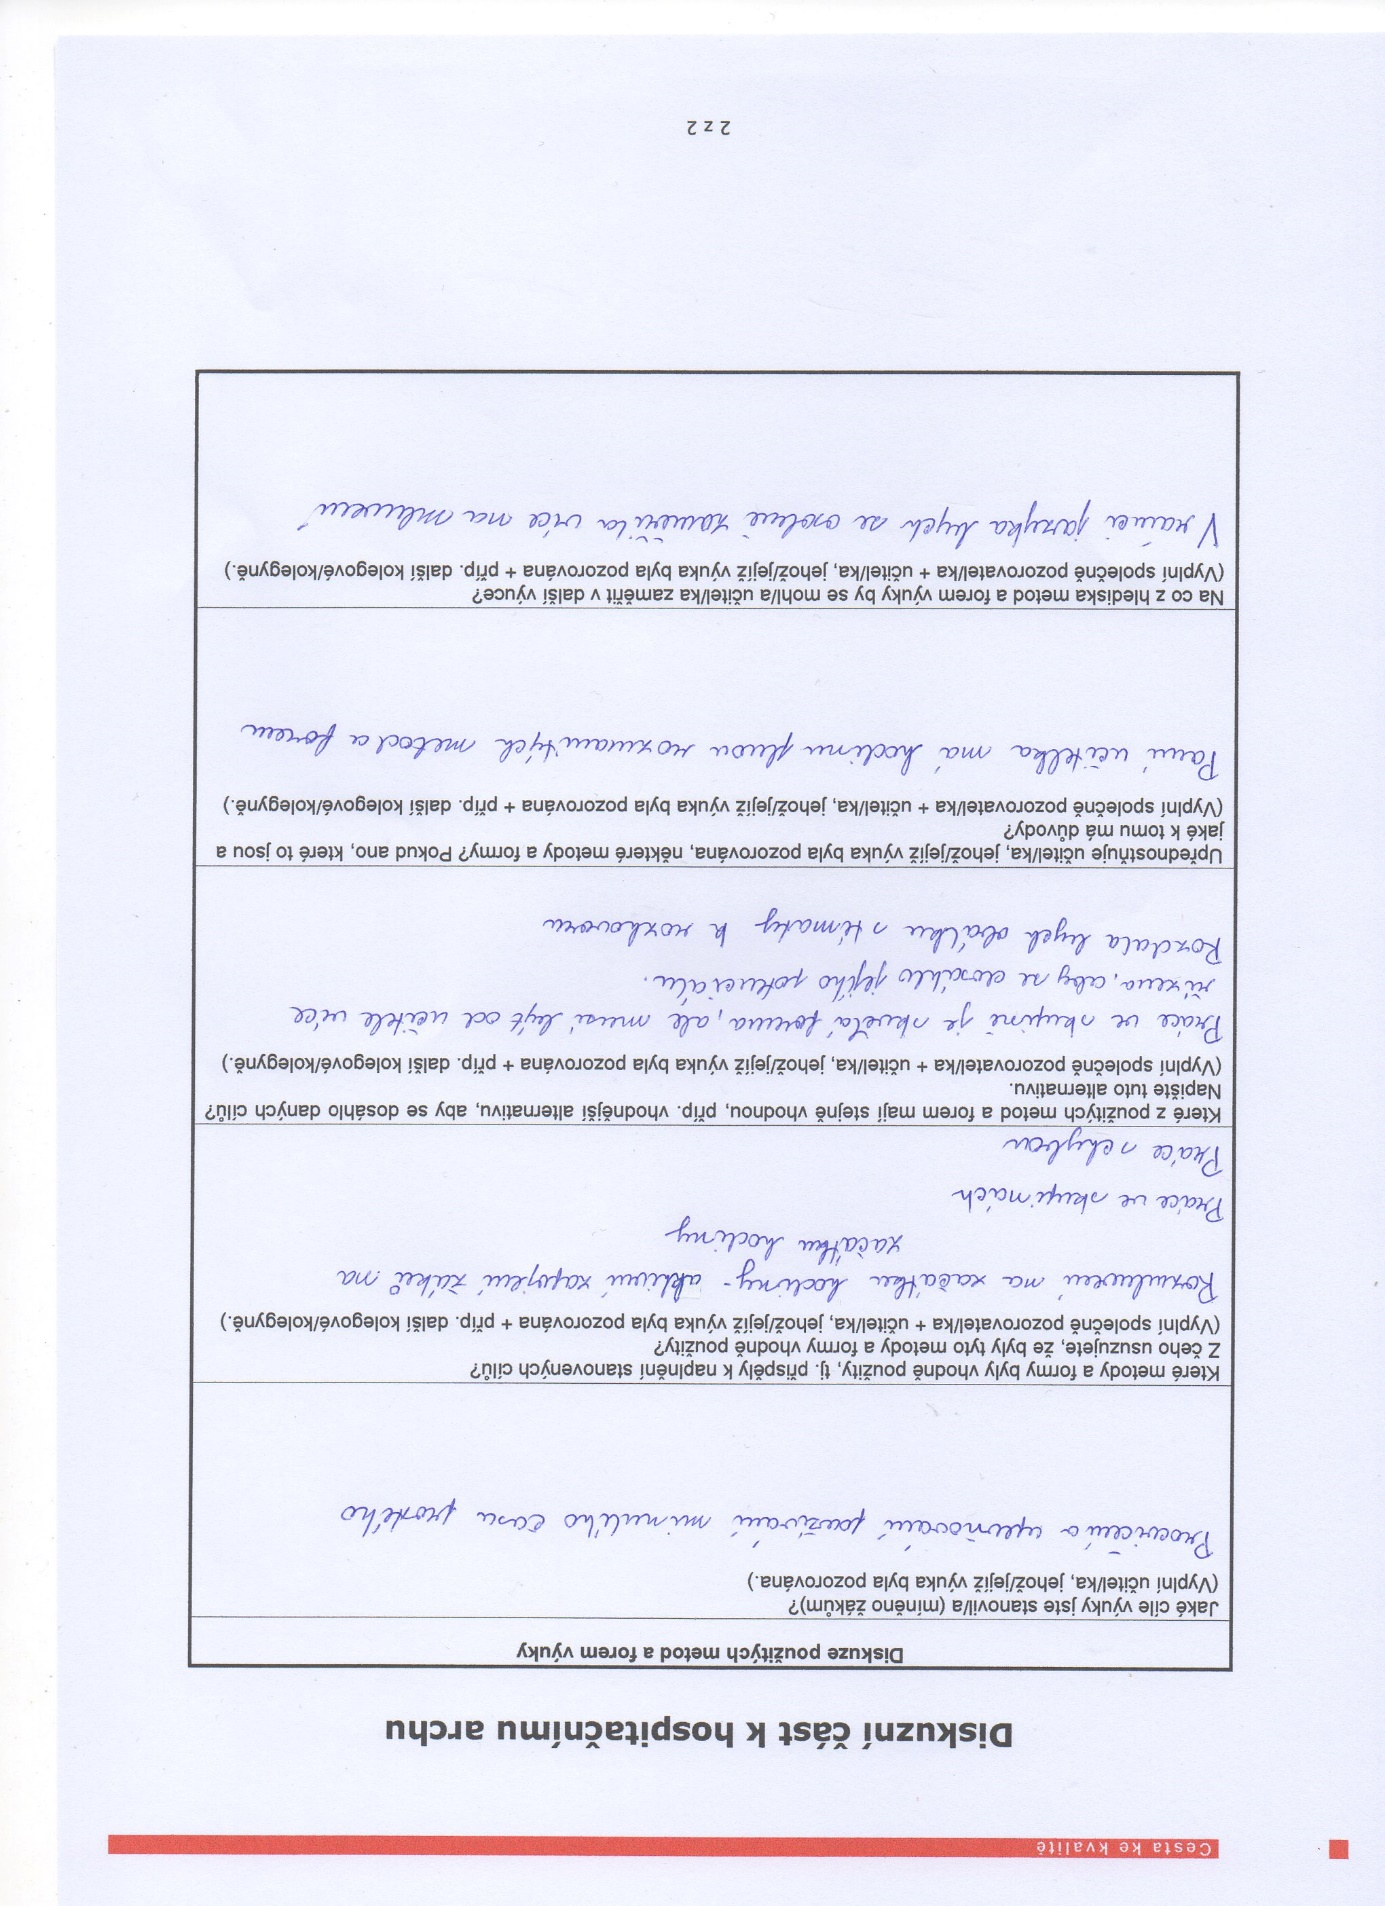 Cesta ke kvalitě
Diskuzní část k hospitačnímu archu
Diskuze použitých metod a forem výuky
Jaké cíle výuky jste stanovil/a (míněno žákům)?
(Vyplní učitel/ka, jehož/jejíž výuka byla pozorována.)
Procvičení a upevňování používání minulého času prostého
Které metody a formy byly vhodně použity, tj. přispěly k naplnění stanovených cílů?
Z čeho usuzujete, že byly tyto metody a formy vhodně použity?
(Vyplní společně pozorovatel/ka + učitel/ka, jehož/jejíž výuka byla pozorována + příp. další kolegové/kolegyně.)
Rozmluvení na začátku hodiny - aktivní zapojení žáků na
začátku hodiny
Práce ve skupinách
Práce s chybou
Které z použitých metod a forem mají stejně vhodnou, příp. vhodnější alternativu, aby se dosáhlo daných cílů?
Napište tuto alternativu.
(Vyplní společně pozorovatel/ka + učitel/ka, jehož/jejíž výuka byla pozorována + příp. další kolegové/kolegyně.)
Práce ve skupině je skvělá forma, ale musí být od učitele více
řízena, aby se dosáhlo jejího potenciálu.
Rozdala bych obálku s tématy k rozhovoru
Upřednostňuje učitel/ka, jehož/jejíž výuka byla pozorována, některé metody a formy? Pokud ano, které to jsou a
jaké k tomu má důvody?
(Vyplní společně pozorovatel/ka + učitel/ka, jehož/jejíž výuka byla pozorována + příp. další kolegové/kolegyně.)
Paní učitelka má hodinu plnou rozmanitých metod a forem
Na co z hlediska metod a forem výuky by se mohl/a učitel/ka zaměřit v další výuce?
(Vyplní společně pozorovatel/ka + učitel/ka, jehož/jejíž výuka byla pozorována + příp. další kolegové/kolegyně.)
V rámci jazyka bych se osobně zaměřila více na mluvení
2 z 2